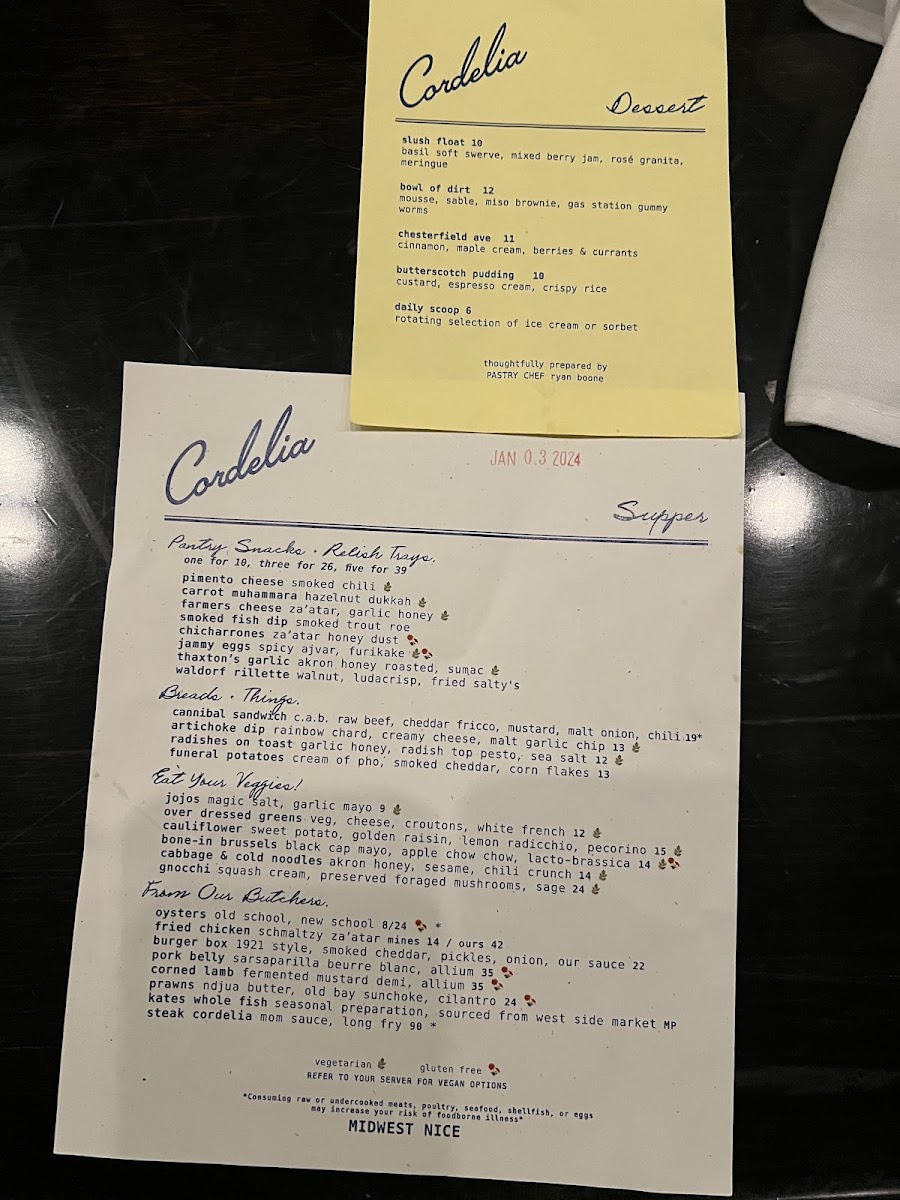 Cordelia
Dessert
slush float 10
basil soft swerve, mixed berry jam, rosé granita,
meringue
bowl of dirt 12
mousse, sable, miso brownie, gas station gummy
worms
chesterfield ave 11
cinnamon, maple cream, berries & currants
butterscotch pudding 10
custard, espresso cream, crispy rice
daily scoop 6
rotating selection of ice cream or sorbet
thoughtfully prepared by
PASTRY CHEF ryan boone
Cordelia
JAN 03 2024
Supper
Pantry Snacks · Relish Trays.
one for 10, three for 26, five for 39
pimento cheese smoked chili
carrot muhammara hazelnut dukkah
farmers cheese za'atar, garlic honey
smoked fish dip smoked trout roe
chicharrones za'atar honey dust
jammy eggs spicy ajvar, furikake
thaxton's garlic akron honey roasted, sumac
waldorf rillette walnut, ludacrisp, fried salty's
Breads · Things.
cannibal sandwich c.a.b. raw beef, cheddar fricco, mustard, malt onion, chili 19*
artichoke dip rainbow chard, creamy cheese, malt garlic chip 13
radishes on toast garlic honey, radish top pesto, sea salt 12
funeral potatoes cream of pho, smoked cheddar, corn flakes 13
Eat Your Veggies!
jojos magic salt, garlic mayo 9
over dressed greens veg, cheese, croutons, white french 12
cauliflower sweet potato, golden raisin, lemon radicchio, pecorino 15
bone-in brussels black cap mayo, apple chow chow, lacto-brassica 14
cabbage & cold noodles akron honey, sesame, chili crunch 14
gnocchi squash cream, preserved foraged mushrooms, sage 24
From Our Butchers.
oysters old school, new school 8/24 *
fried chicken schmaltzy za'atar mines 14 / ours 42
burger box 1921 style, smoked cheddar, pickles, onion, our sauce 22
pork belly sarsaparilla beurre blanc, allium 35
corned lamb fermented mustard demi, allium 35
prawns ndjua butter, old bay sunchoke, cilantro 24
kates whole fish seasonal preparation, sourced from west side market MP
steak cordelia mom sauce, long fry 90 *
vegetarian gluten free
REFER TO YOUR SERVER FOR VEGAN OPTIONS
*Consuming raw or undercooked meats, poultry, seafood, shellfish, or eggs
may increase your risk of foodborne illness*
MIDWEST NICE